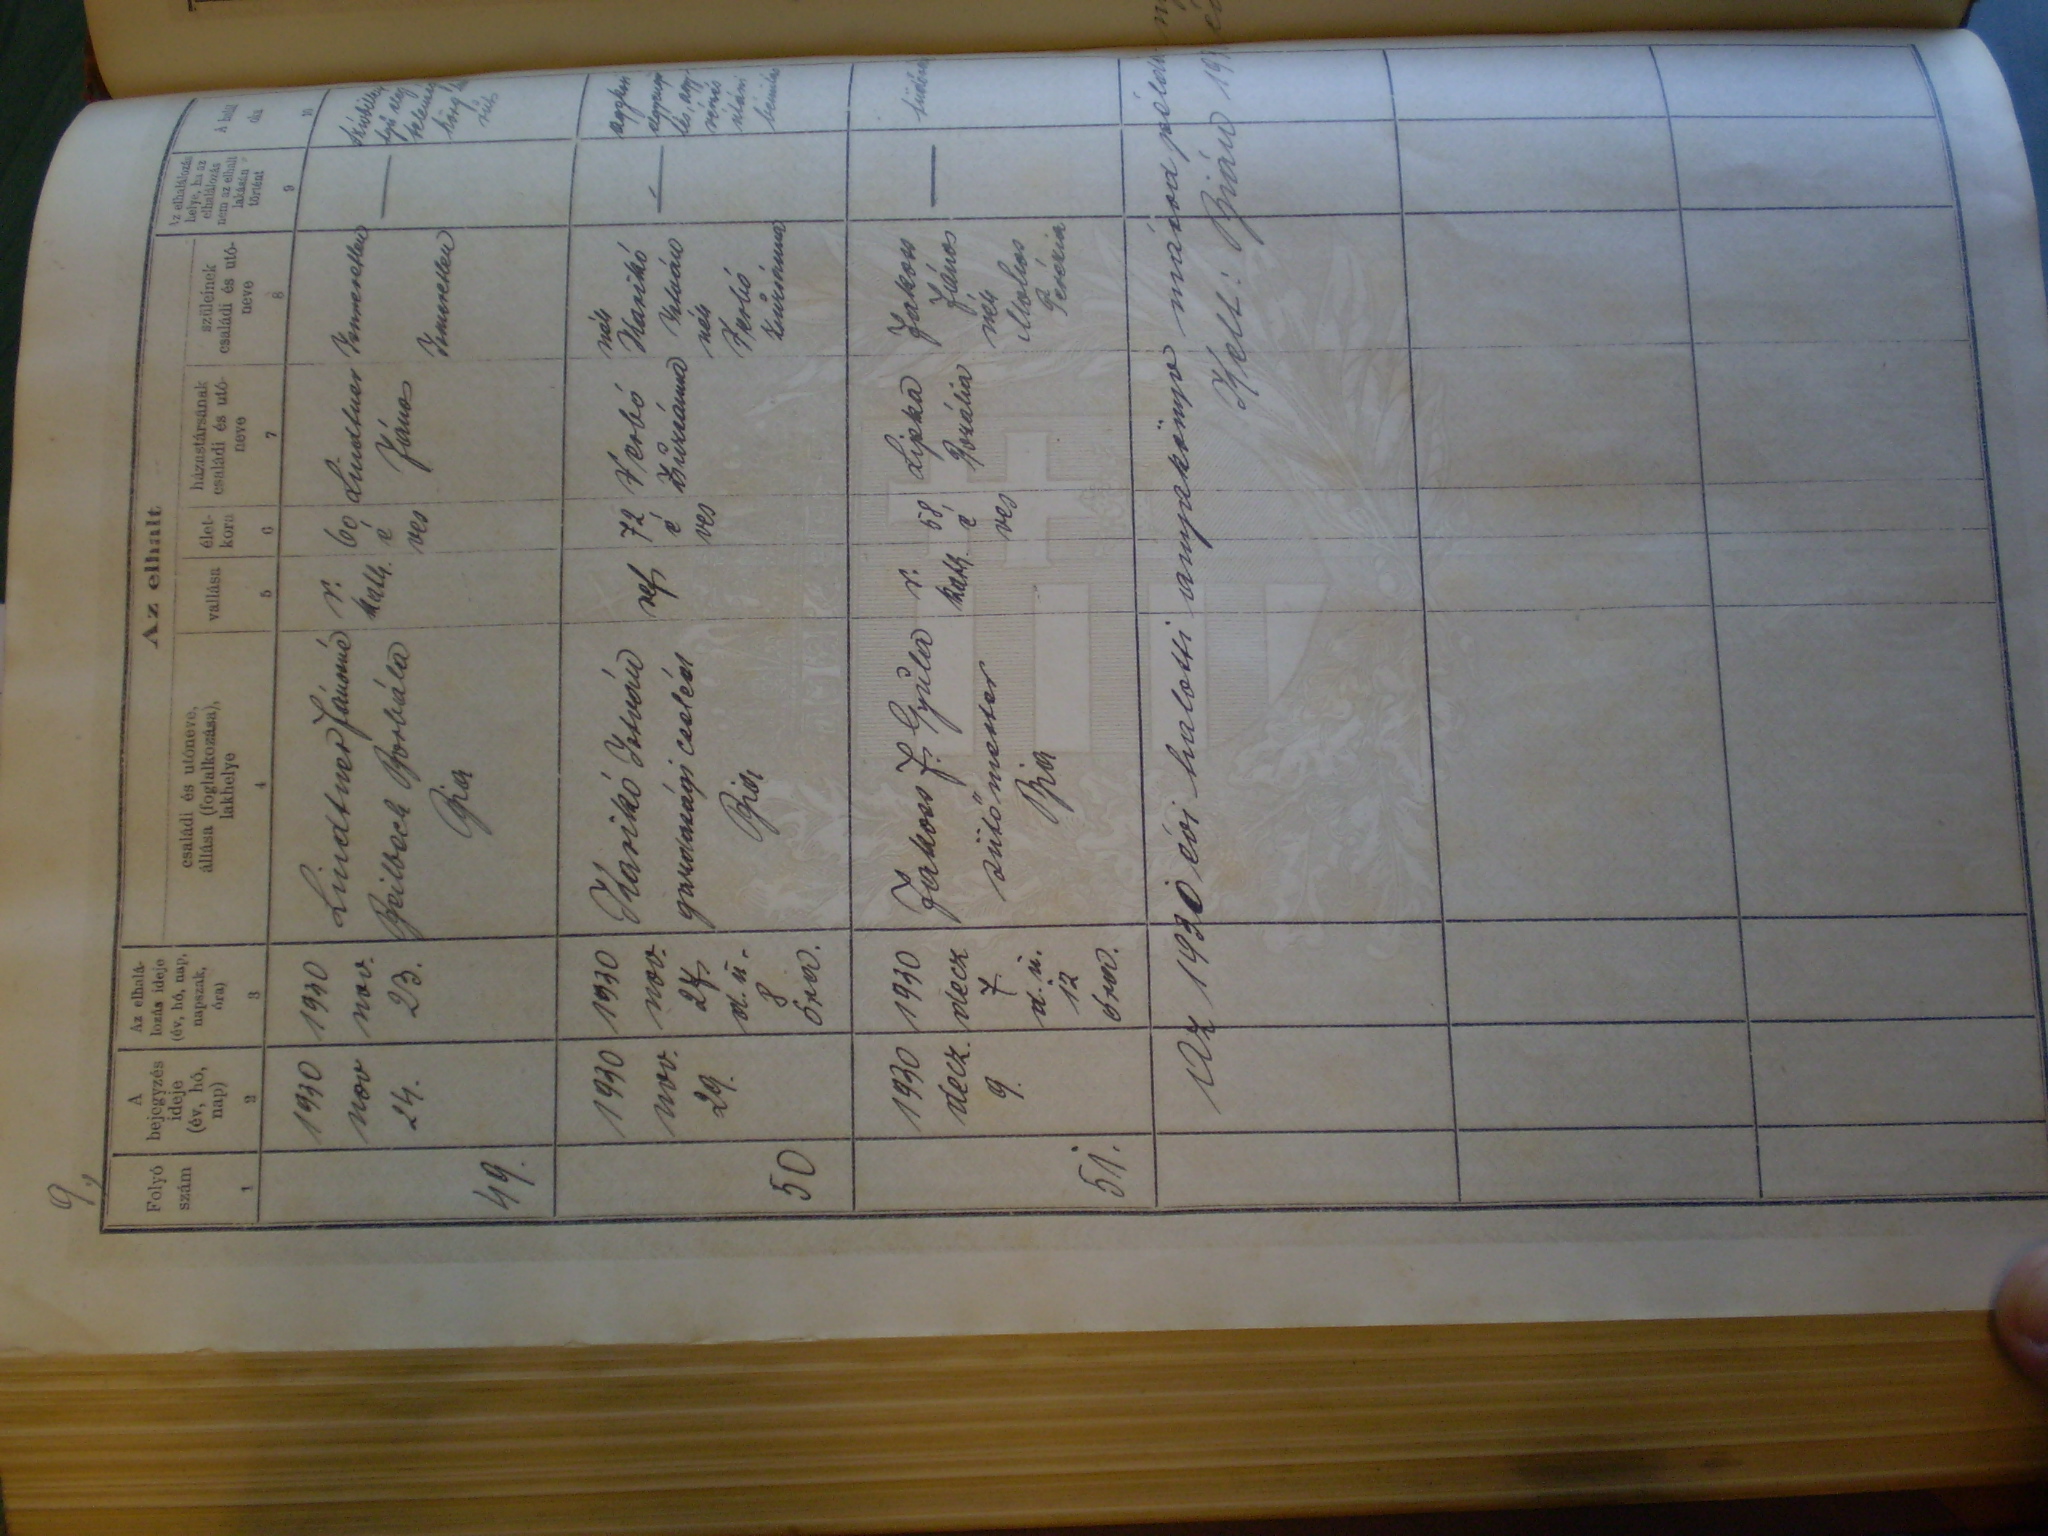 9,
Az elhalt
Folyó
szám
1
A
bejegyzés
ideje
(év, hó,
nap)
2
Az elhalá-
lozás ideje
(év, hó, nap,
napszak,
óra)
3
családi és utóneve,
állása (foglalkozása),
lakhelye
4
vallása
5
élet-
kora
6
házastársának
családi és utó-
neve
7
szüleinek
családi és utó-
neve
8
Az elhalálozás
helye, ha az
elhalálozás
nem az elhalt
lakásán
történt
9
A halál
10
49.
1930
nov
24.
1930
nov.
23.
Lindtner Jánosné
Borbála
Bia
r.
kath.
60
é
ves
Lindtner
János
Ismeretlen
Ismeretlen
50
1930
nov.
29.
1930
nov.
27
d. u.
8
órav.
Harikó István
gazdasági cseléd
Bia
ref
72
é
ves
Verbó
Zsuzsánna
néh
Harikó
István
néh
Verbó
Zsuzsánna
51.
1930
decz.
9.
1930
decz
7
d. u.
12
órav.
J. Gyula
sütőmester
Bia
r.
kath.
58
é
ves
Lipka
Rozália
János
néh
Terézia
Az 1930 évi halotti anyakönyv másod
Kelt: Bián